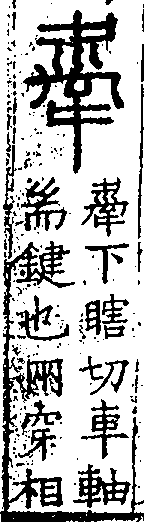 舝
舝下瞎切車軸
耑鍵也兩穿相